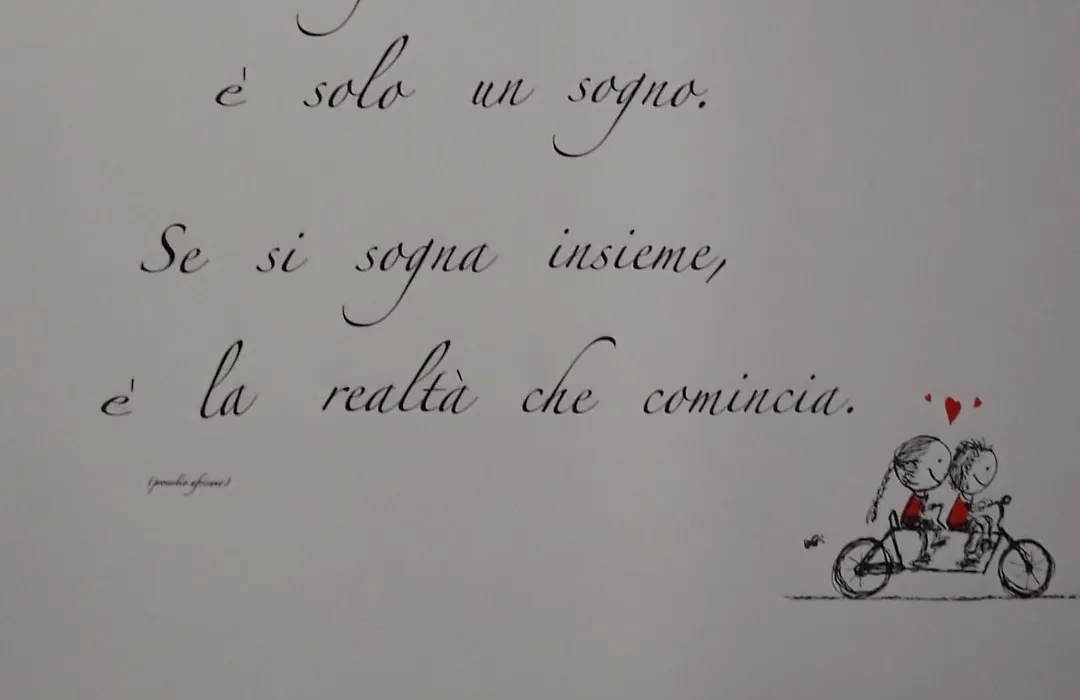 è solo un sogno.
Se si sogna insieme,
è la realtà che comincia.
(proverbio africano)